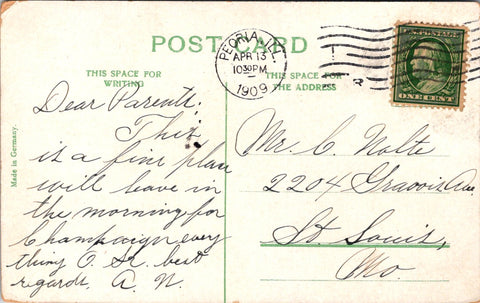 POST CARD
PEORIA, ILL.
APR 13
1030PM
1909
ONE CENT
THIS SPACE FOR
WRITING
THIS SPACE FOR
THE ADDRESS
Made in Germany.
Dear Parents:
This
is a fine place
will leave in
the morning for
Champaign every
thing O.K. best
regards. A. N.
Mr. C. Nolte
2204 Gravois Ave.
St. Louis,
Mo.